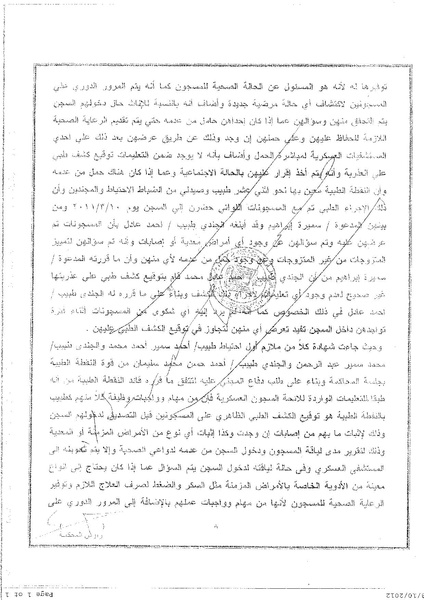 توفيرها له لأنه هو المسئول عن الحالة الصحية للمسجون كما أنه يتم المرور الدوري على
المسجونين لاكتشاف أي حالة مرضية جديدة وأضاف أنه بالنسبة للإناث حال دخولهم السجن
يتم التحقق منهن وسؤالهن عما إذا كان إحداهن حامل من عدمه حتى يتم تقديم الرعاية الصحية
اللازمة للحفاظ عليهن وعلى حملهن إن وجد وذلك عن طريق عرضهن بعد ذلك على احدي
المستشفيات العسكرية لمباشرة الحمل وأضاف بأنه لا يوجد ضمن التعليمات توقيع كشف طبي
على العذرية وأنه يتم أخذ إقرار عليهن بالحالة الاجتماعية وعما إذا كان هناك حمل من عدمه
وإن النقطة الطبية معين بها نحو اثنى عشر طبيب وصيدلي من الضباط الاحتياط والمجندين وأن
ذلك الإجراء الطبي تم مع المسجونات اللواتي حضرن إلى السجن يوم ٢٠١١/٣/١٠ ومن
بينهن المدعوة / سميرة إبراهيم وقد أبلغه الجندي طبيب / احمد عادل بأن المسجونات تم
عرضهن عليه وتم سؤالهن عن وجود أي أمراض معدية أو إصابات وانه تم سؤالهن لتمييز
المتزوجات من غير المتزوجات وعن وجود حمل من عدمه لأي منهن وأن ما قررته المدعوة /
سميرة إبراهيم من أن الجندي طبيب / احمد عادل محمد قام بتوقيع كشف طبي على عذريتها
غير صحيح لعدم وجود أي تعليمات لإجراء ذلك الكشف وبناء على ما قرره له الجندي طبيب /
احمد عادل في ذلك الخصوص كما أنه لم يرد إليه أي شكوى من المسجونات أثناء فترة
تواجدهن داخل السجن تفيد تعرض أي منهن لتجاوز في توقيع الكشف الطبي عليهن .
وحيث جاءت شهادة كلاً من ملازم أول احتياط طبيب/ أحمد سمير أحمد محمد والجندي طبيب/
محمد سمير عبد الرحمن والجندي طبيب / أحمد حسن محمد سليمان من قوة النقطة الطبية
بجلسة المحاكمة وبناء على طلب دفاع المجني عليه اتفق ما قرره قائد النقطة الطبية من انه
طبقا للتعليمات الواردة للائحة السجون العسكرية فأن من مهام وواجبات وظيفة كلاً منهم كطبيب
بالنقطة الطبية هو توقيع الكشف الطبي الظاهري على المسجونين قبل التصديق لدخولهم السجن
وذلك لإثبات ما بهم من إصابات إن وجدت وكذا إثبات أي نوع من الأمراض المزمنة أو المعدية
وذلك لتقرير مدى لياقة المسجون ودخول السجن من عدمه لدواعي الصحية وإلا يتم تحويله الى
المستشفى العسكري وفى حالة لياقته لدخول السجن يتم السؤال عما إذا كان يحتاج إلى أنواع
معينة من الأدوية الخاصة بالأمراض المزمنة مثل السكر والضغط لصرف العلاج اللازم وتوفير
الرعاية الصحية للمسجون لأنها من مهام وواجبات عملهم بالإضافة إلى المرور الدوري على
Page 1 of 1
/10/2012